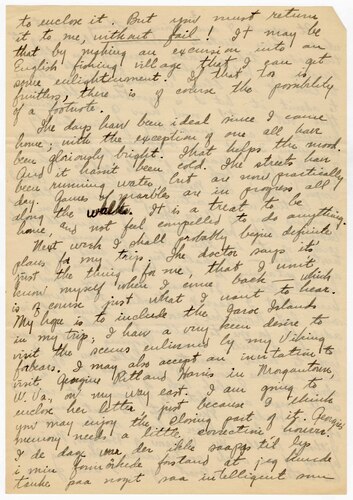 to enclose it. But you must return
it to me, without fail! It may be
that by making an excursion into an
English fishing village that I can get
some enlightenment. If that too is
fruitless, there is of course the possibility
of a footnote.
The days have been ideal since I came
home; with the exception of one all have
been gloriously bright. That helps the mood.
And it hasn't been cold. The streets have
been running water but are now practically
dry. Games of marbles are in progress all
along the walk. It is a treat to be
home, and not feel compelled to do anything.
Next week I shall probably begin definite
plans for my trip. The doctor says it's
just the thing for me, that I won't
know myself when I come back — which
is of course just what I want to hear.
My hope is to include the Faroe Islands
in my trip; I have a very keen desire to
visit the scenes enlivened by my Viking
forbears. I may also accept an invitation to
visit Georgine Ritland Harris in Morgantown,
W. Va., on my way east. I am going to
enclose her letter just because I think
you may enjoy the closing part of it. Georgie's
memory needs a little correction however.
I de dage var der ikke saapas til hip
i min formørkede forstand at jeg kunde
tænke paa noget saa intelligent som